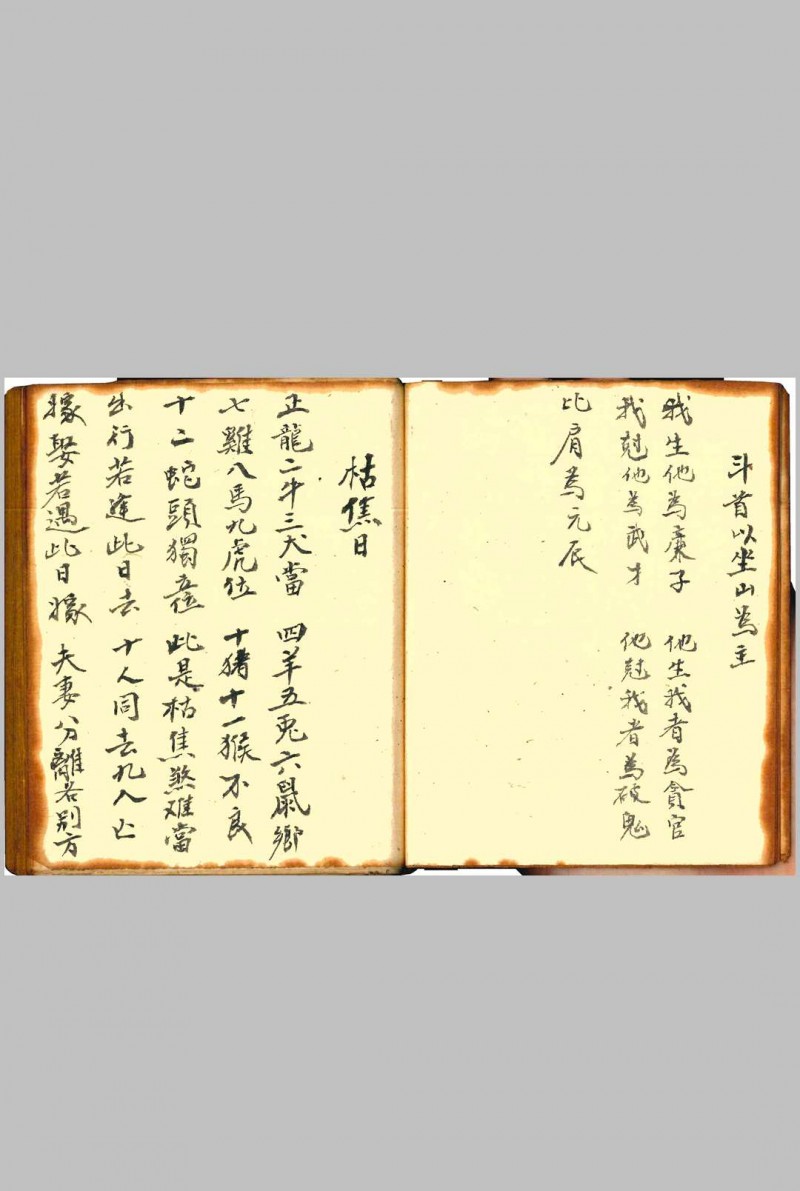 斗首以坐山為主
我生他為廉子 他生我者為貪官
我尅他為武才 他尅我者為破鬼
比肩為元辰
枯焦日
正龍二牛三犬當 四羊五兎六鼠鄉
七雞八馬九虎位 十猪十一猴不良
十二蛇頭獨立位 此是枯焦煞难當
出行若逢此日去 十人同去九人亡
嫁娶若遇此日嫁 夫妻分離各别方